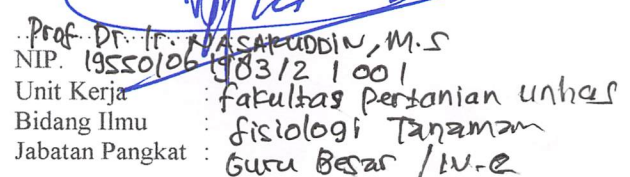 Prof. Dr. Ir. NASARUDDIN, M.S
NIP. 19550106 198312 1 001
Unit Kerja : fakultas pertanian unhas
Bidang Ilmu : fisiologi Tanaman
Jabatan Pangkat : Guru Besar / IV-e